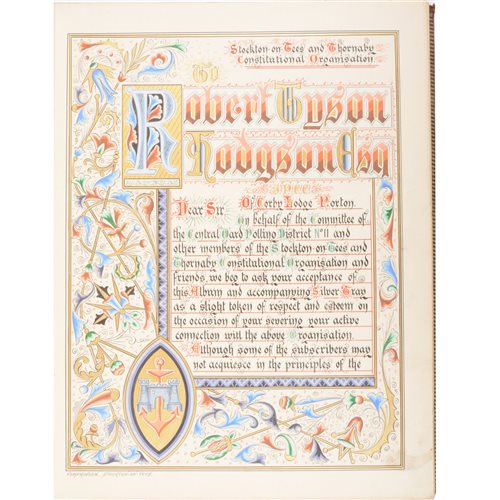 Stockton-on-Tees and Thornaby
Constitutional Organisation.
To
Robert Tyson
Hodgson Esq
Dear Sir Of Corby Lodge Norton.
On behalf of the Committee of
the Central Ward Polling District No 11 and
other members of the Stockton-on-Tees and
Thornaby Constitutional Organisation and
friends, we beg to ask your acceptance of
this Album and accompanying Silver Tray
as a slight token of respect and esteem on
the occasion of your severing your active
connection with the above Organisation.
Although some of the subscribers may
not acquiesce in the principles of the